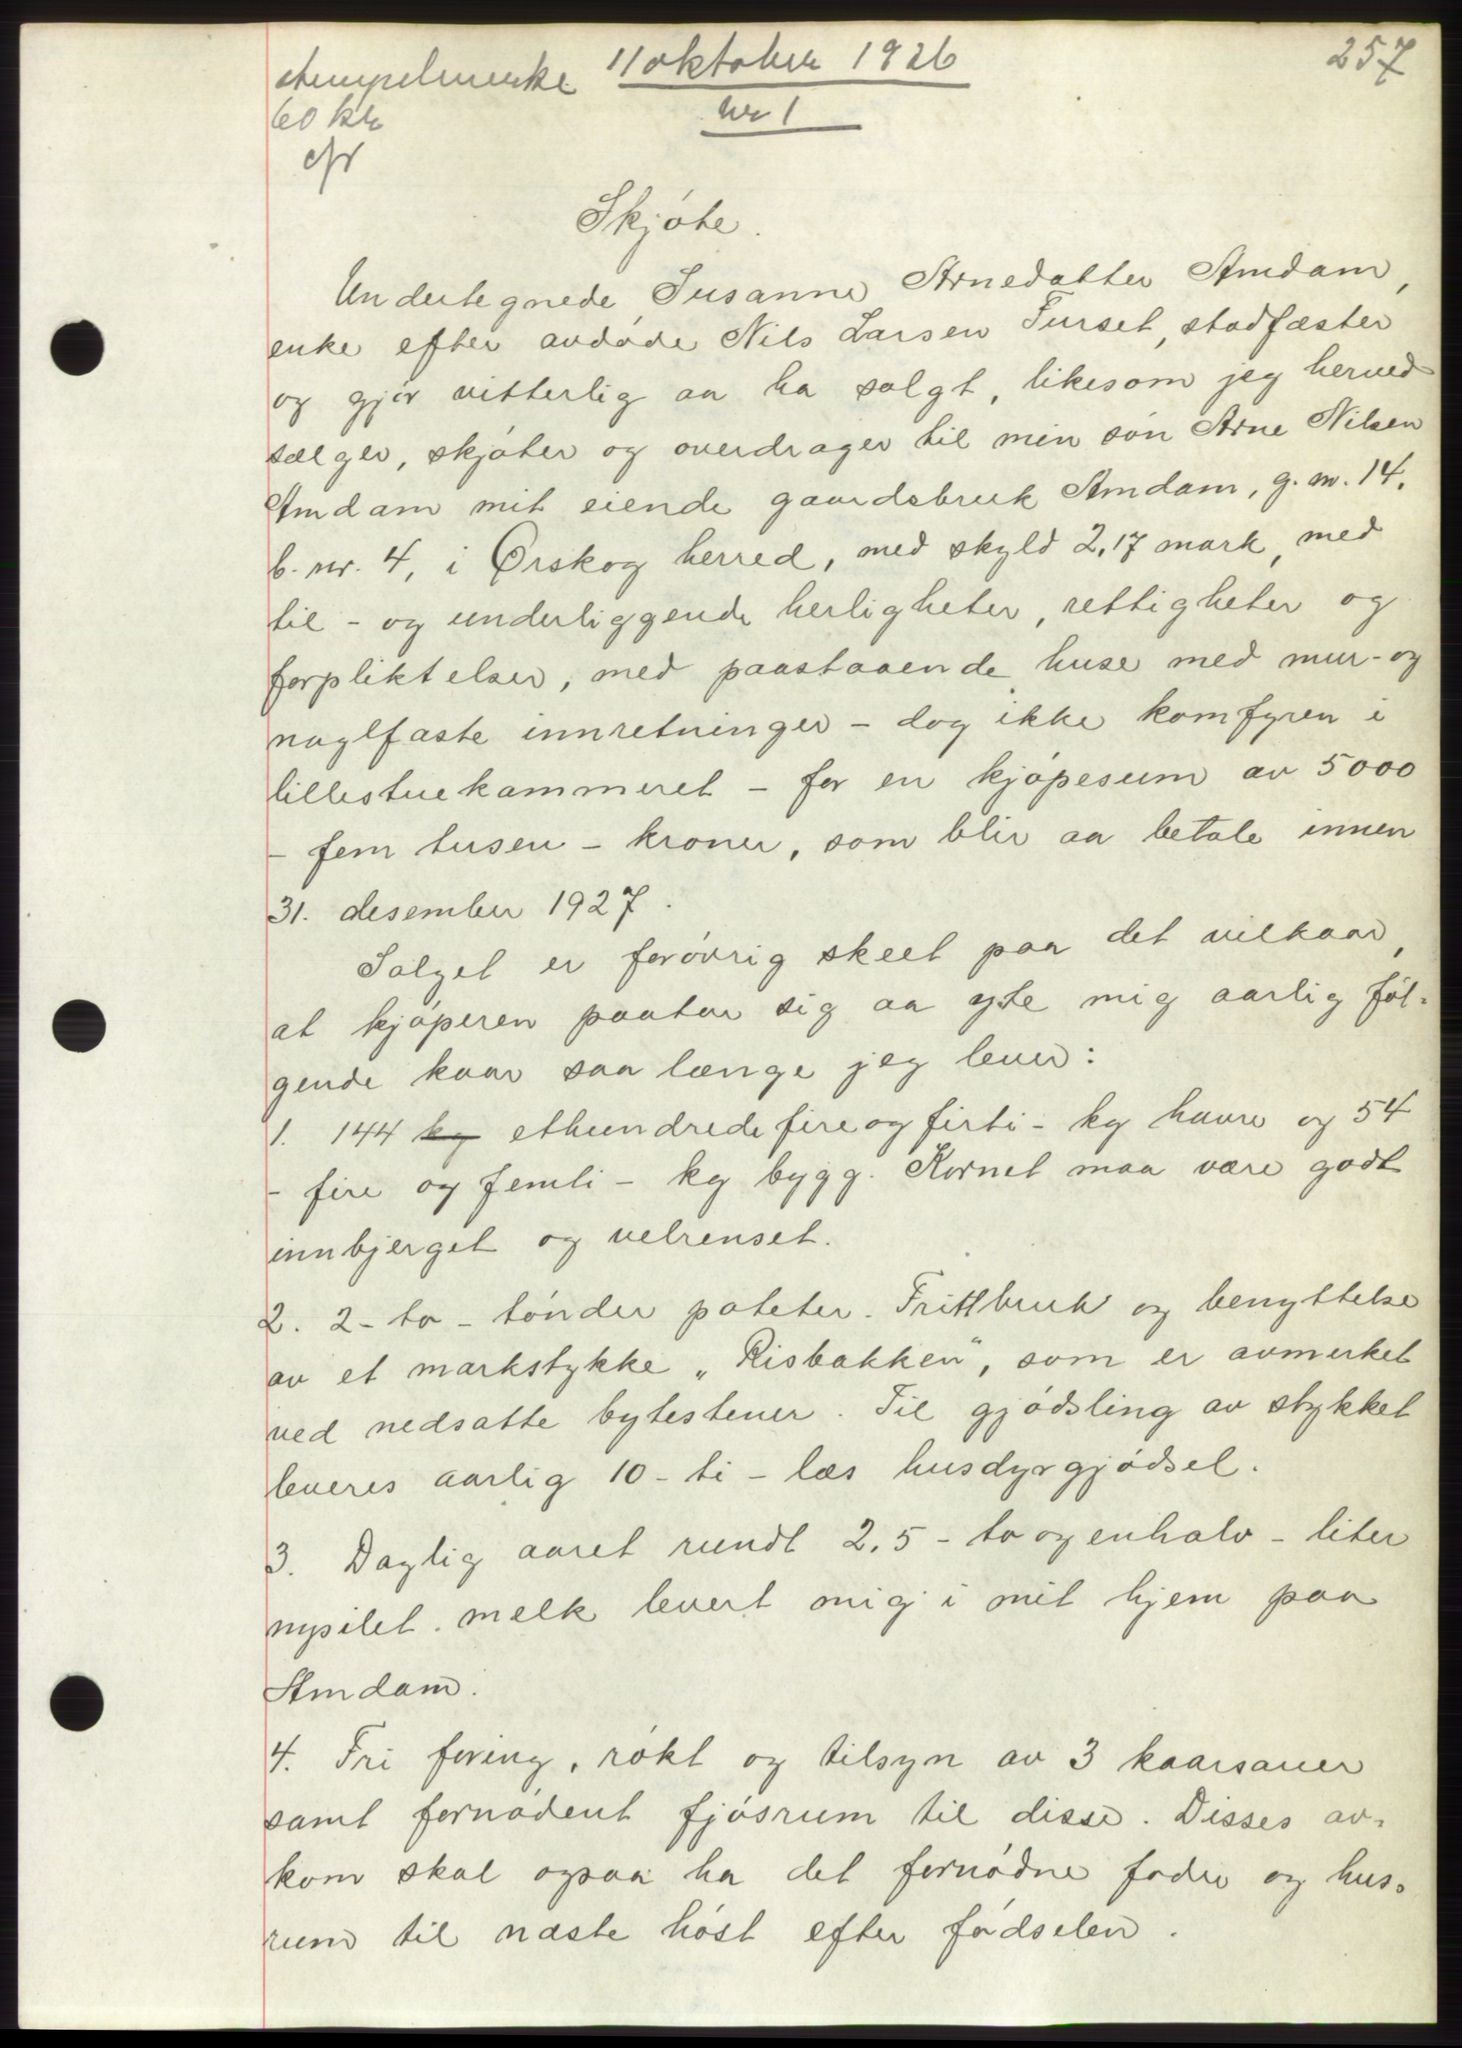 257
11 oktober 1926
stempelmerke
60 kr
nr 1
Skjóte.
Undertegnede, Susanne Arnedatter Amdam,
enke efter avdóde Nils Larsen Furset, stadfæster
og gjór vitterlig aa ha solgt, likesom jeg herved
sælger, skjóter og overdrager til min són Arne Nilsen
Amdam mit eiende gaardsbruk Amdam, g.nr. 14,
b.nr. 4, i Ørskog herred, med skyld 2,17 mark, med
til- og underliggende herligheter, rettigheter og
forpliktelser, med paastaaende huse med mur- og
naglfaste innretninger - dog ikke komfyren i
lillestuekammeret - for en kjópesum av 5000
- fem tusen - kroner, som blir aa betale innen
31. desember 1927.
Salget er foróvrig skeet paa det vilkaar,
at kjóperen paatar sig aa yte mig aarlig föl-
gende kaar saa længe jeg lever:
1. 144 kg ethundrede fire og firti - kg havre og 54
- fire og femti - kg bygg. Kornet maa være godt
innbjerget og velrenset.
2. 2 - to - tónder poteter. Fritt bruk og benyttelse
av et markstykke „Risbakken", som er avmerket
ved nedsatte bytestener. Til gjódsling av stykket
leveres aarlig 10 - ti - læs husdyrgjódsel.
3. Daglig aaret rundt 2,5 - to og en halv - liter
nysilet melk levert mig i mit hjem paa
Amdam.
4. Fri foring, rókt og tilsyn av 3 kaarsauer
samt fornódent fjósrum til disse. Disses av-
kom skal ogsaa ha det fornódne foder og hus-
rum til næste hóst efter fódselen.